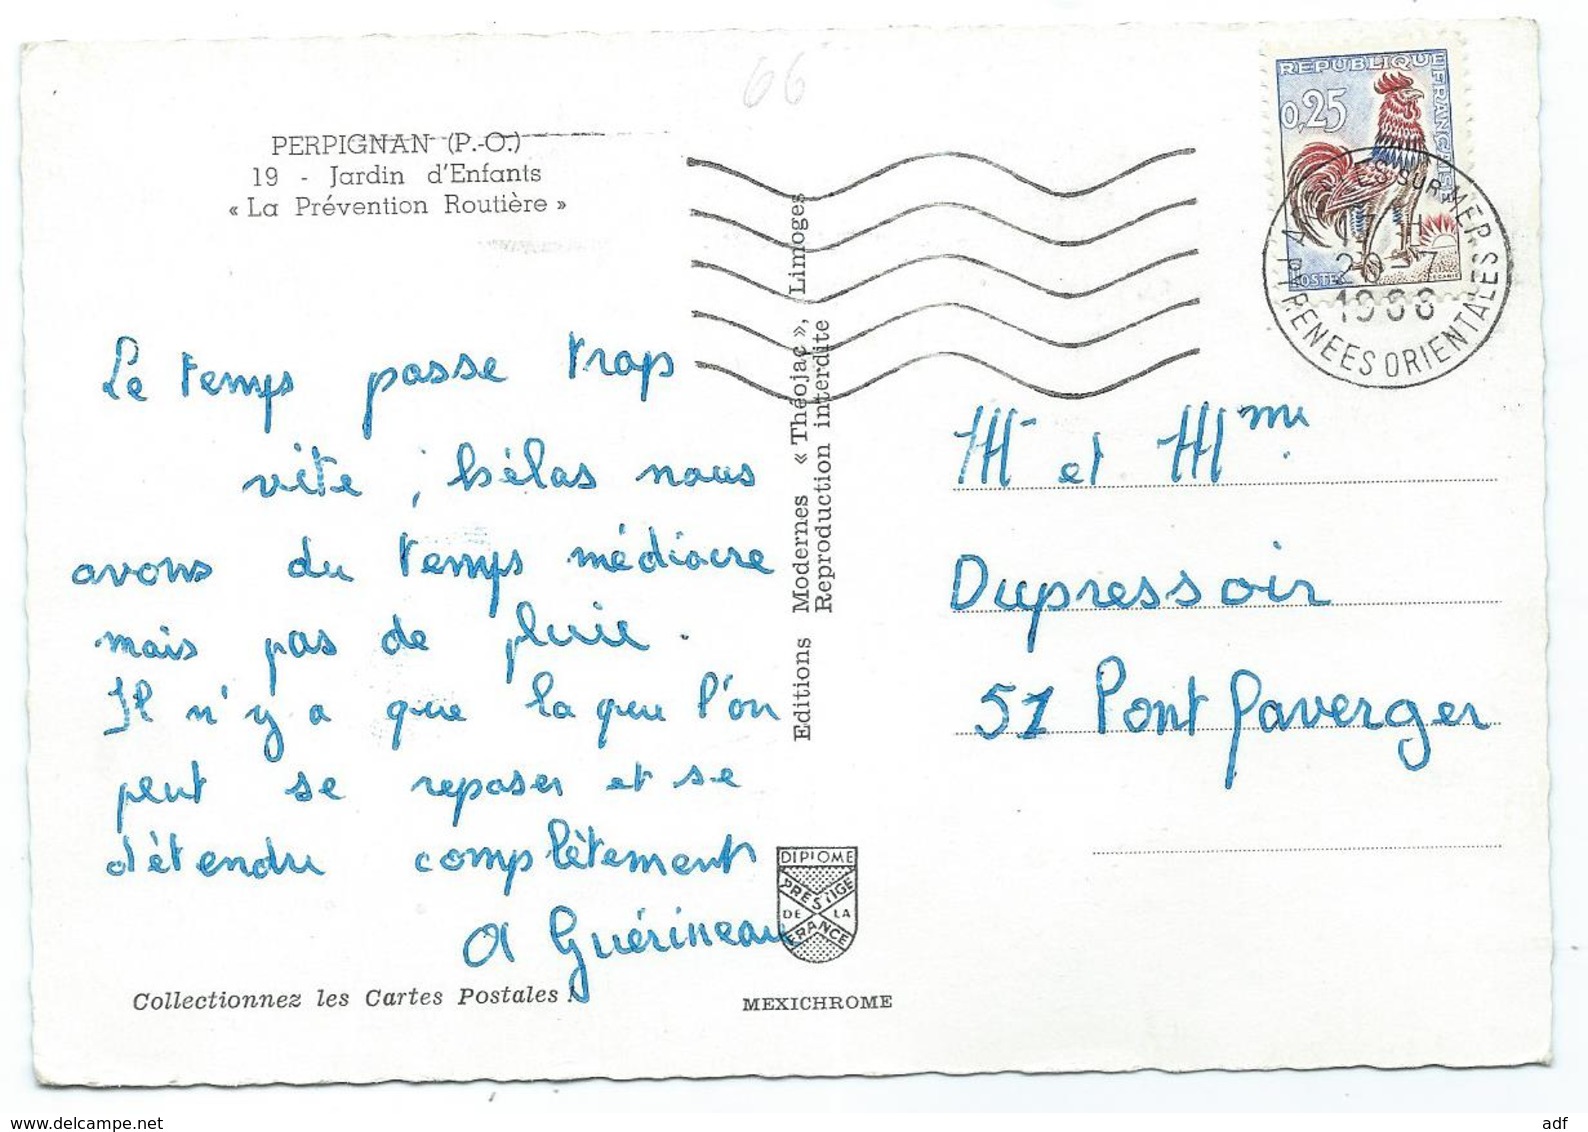 66
PERPIGNAN (P.-O.)
19 - Jardin d'Enfants
« La Prévention Routière »
REPUBLIQUE FRANÇAISE
0,25
POSTES
ARGELES SUR MER
17 H
20 - 7
1966
PYRENEES ORIENTALES
Le temps passe trop
vite ; hélas nous
avons du temps médiocre
mais pas de pluie.
Il n'y a que la que l'on
peut se reposer et se
détendre complètement
A Guérineau
Collectionnez les Cartes Postales !
Editions Modernes « Théojac », Limoges
Reproduction interdite
DIPLOME
PRESTIGE
DE LA
FRANCE
MEXICHROME
M et Mme
Dupressoir
51 Pont Faverger
www.delcampe.net
adf